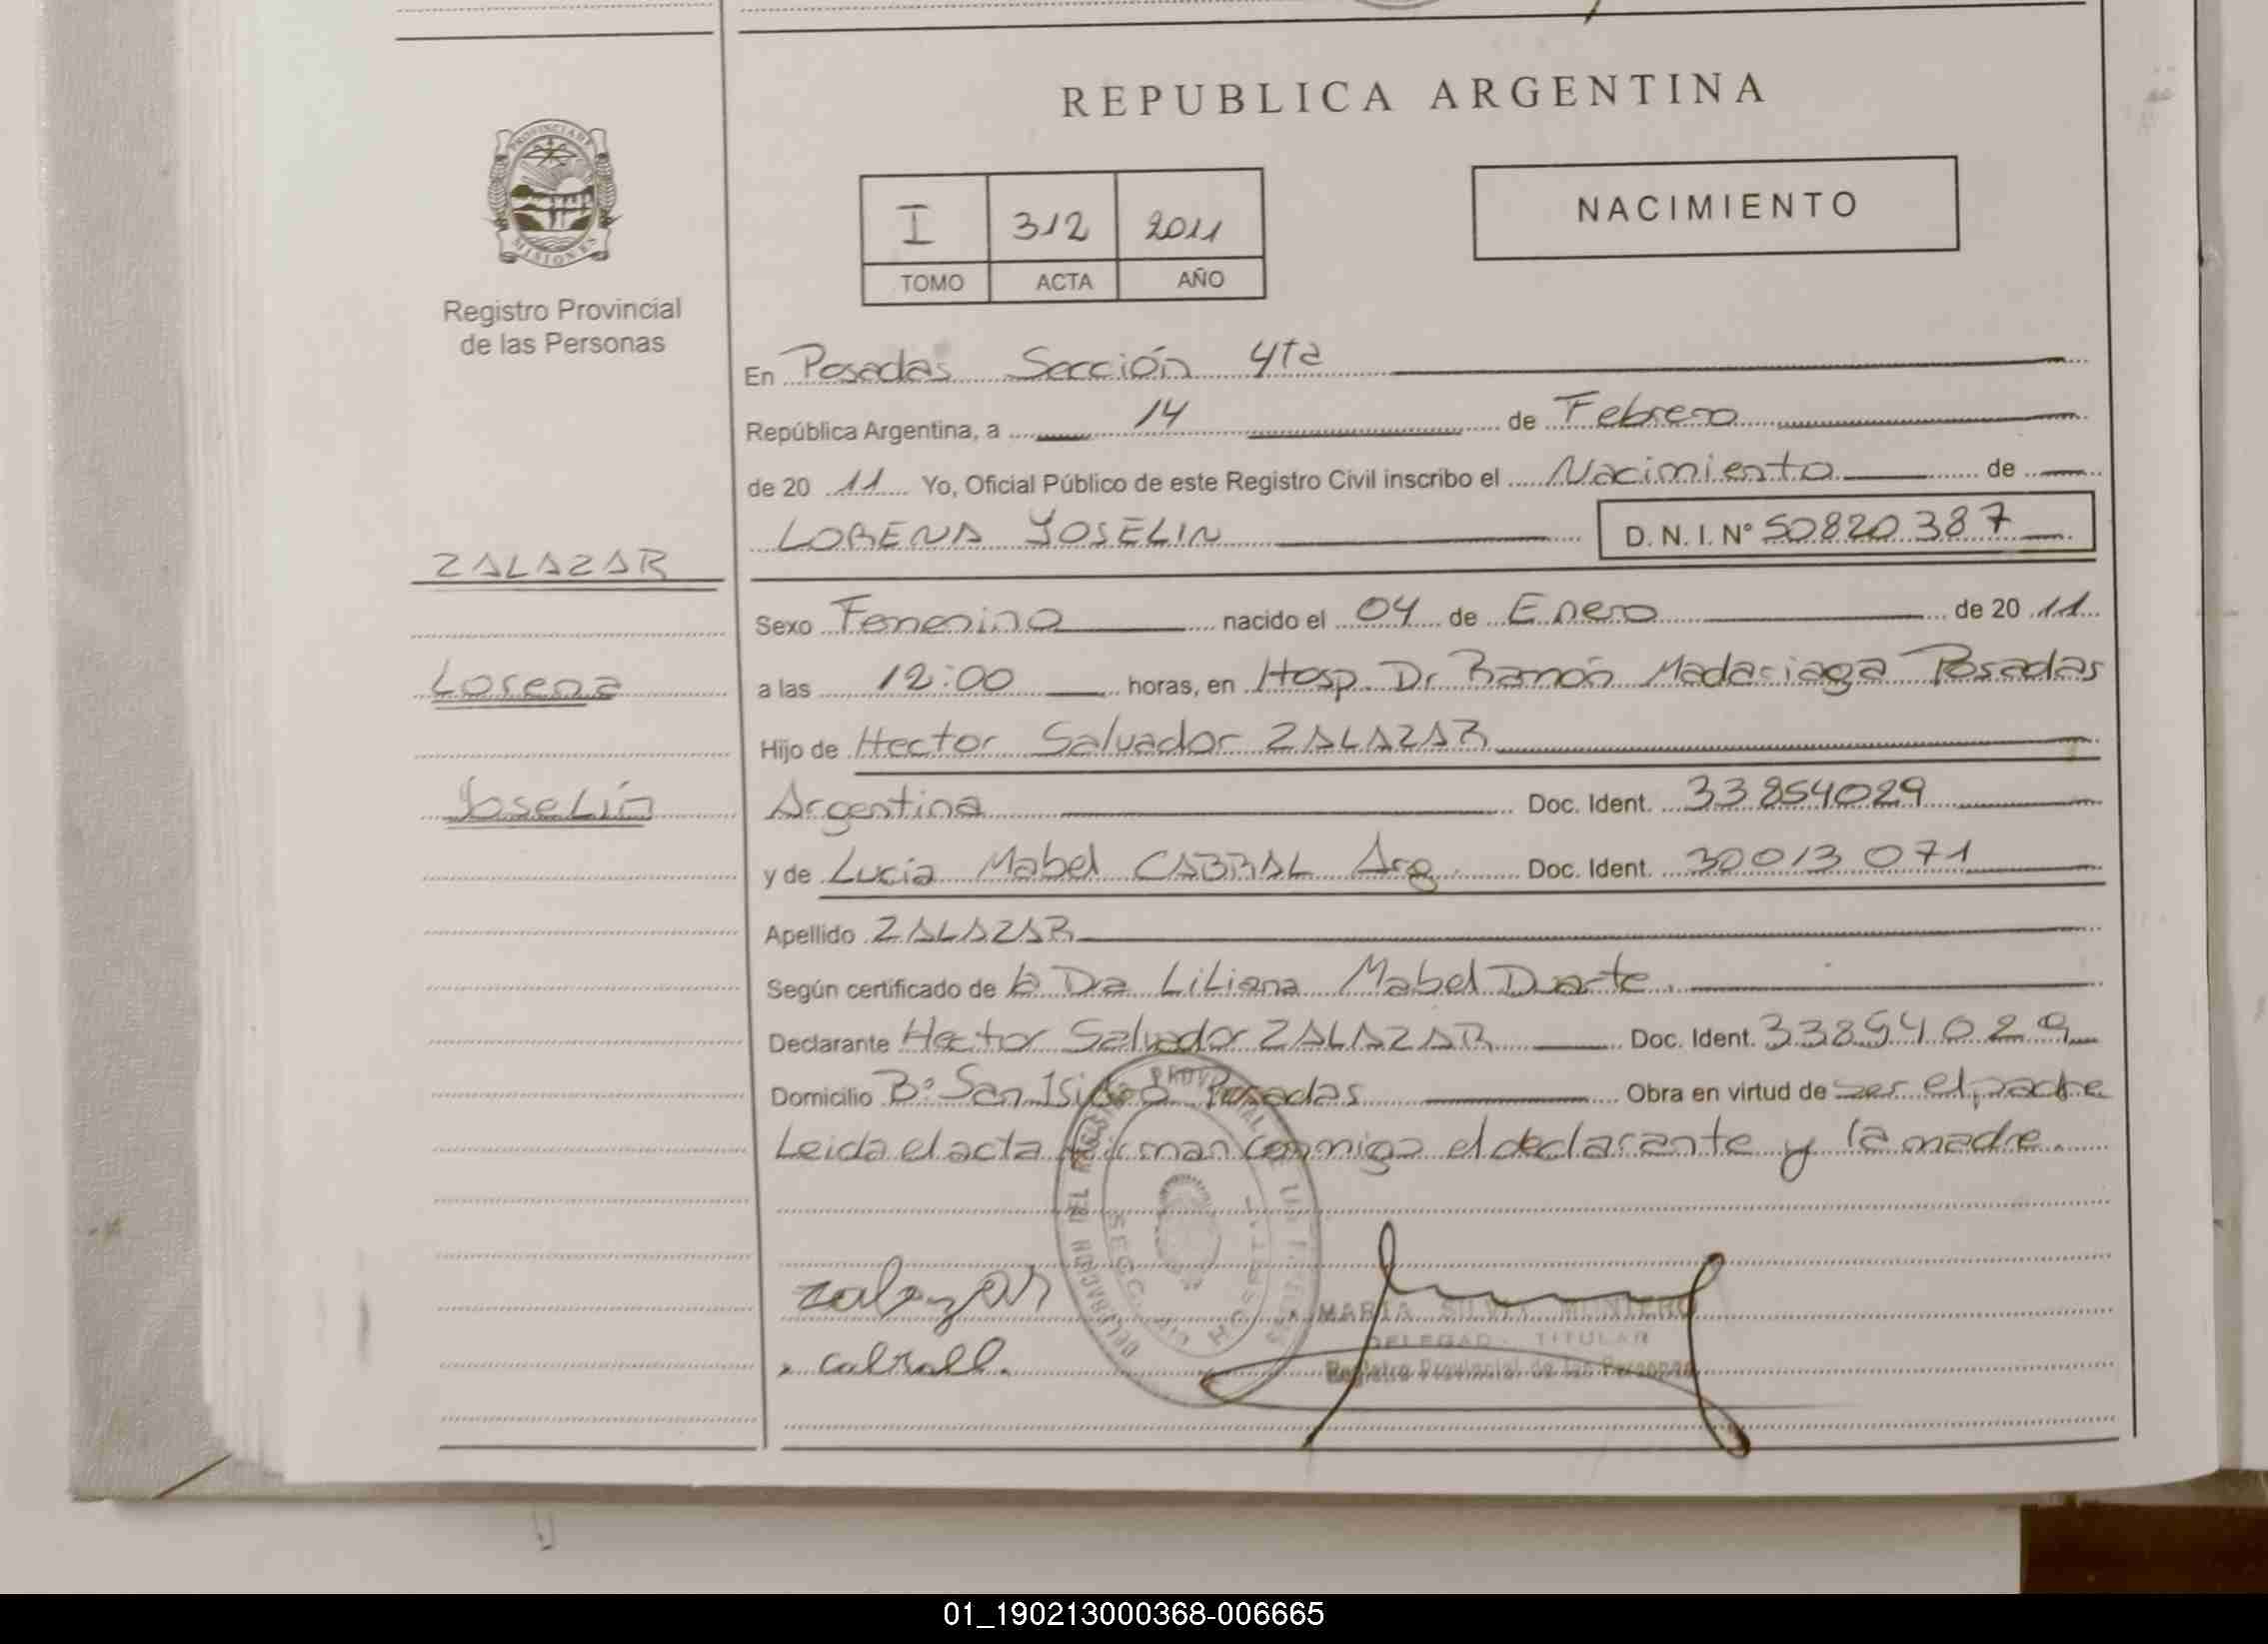 REPUBLICA ARGENTINA
PROVINCIA DE
MISIONES
Registro Provincial
de las Personas
I 312 2011
TOMO ACTA AÑO
NACIMIENTO
En Posadas Sección 4ta
República Argentina, a 14 de Febrero
de 20 11 Yo, Oficial Público de este Registro Civil inscribo el Nacimiento de
LORENA JOSELIN D. N. I. Nº 50820387
ZALAZAR
Lorena
Joselín
Sexo Femenino nacido el 04 de Enero de 20 11
a las 12:00 horas, en Hosp. Dr Ramón Madariaga Posadas
Hijo de Hector Salvador ZALAZAR
Argentina Doc. Ident. 33854029
y de Lucia Mabel CABRAL Arg. Doc. Ident. 30013071
Apellido ZALAZAR
Según certificado de la Dra Liliana Mabel Duarte.
Declarante Hector Salvador ZALAZAR Doc. Ident. 33854029
Domicilio Bº San Isidro Posadas Obra en virtud de ser el padre
Leida el acta firman conmigo el declarante y la madre.
zalazar
cabrall.
MARIA SILVIA MONIERO
DELEGAD TITULAR
Registro Provincial de las Personas
01_190213000368-006665